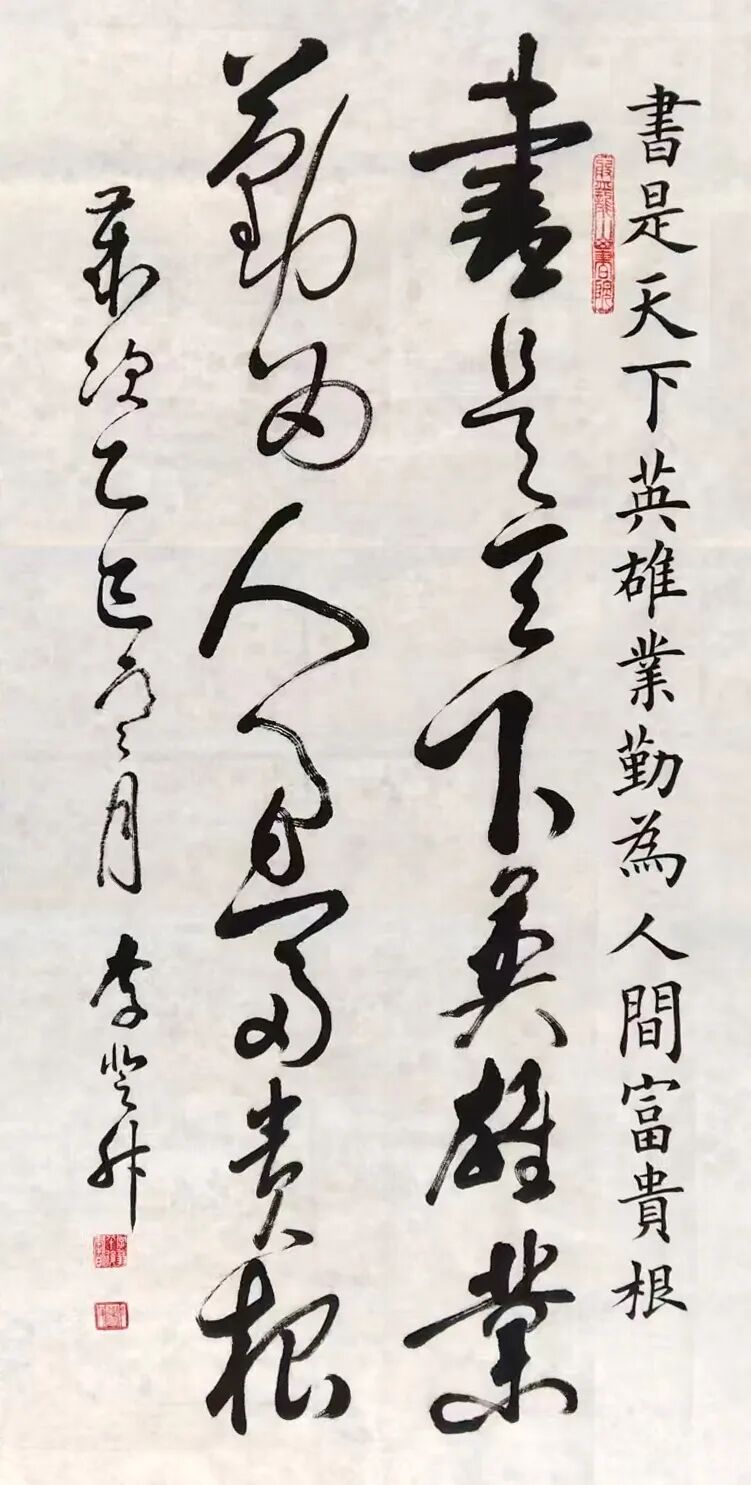 書是天下英雄業勤為人間富貴根
書是天下英雄業
勤為人間富貴根
歲次乙巳夏月 李登升